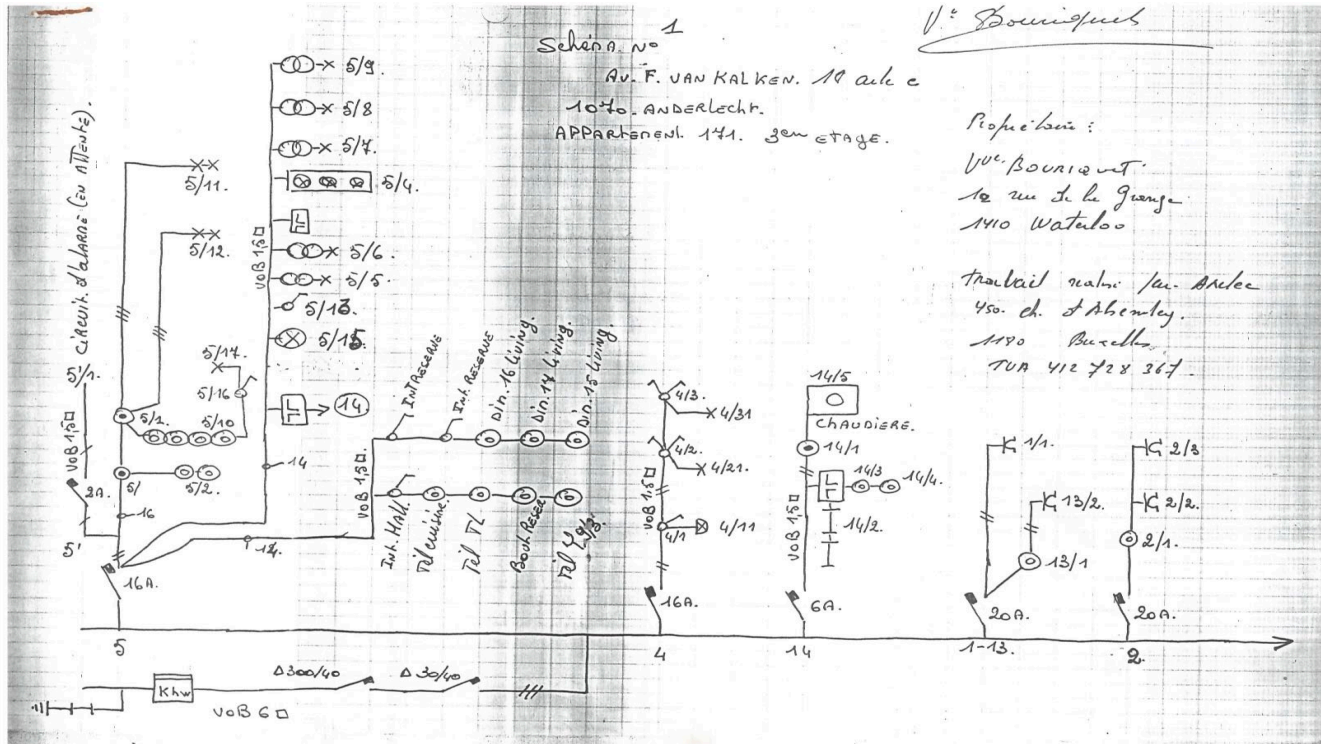 Schéma No 1
Av. F. VAN KALKEN.
1070. ANDERlecht.
APPARTEMENT 171. 3em ETAGE.
Propriétaire :
Vve BOURIQUET.
12 rue de la Grange
1410 Waterloo
travail réalisé par
450. ch. d'
1180 Bruxelles
TVA 412 728 367.
circuit d'alarme (en ATTente).
5/9.
5/8
5/7.
5/4.
5/6
5/5
5/13
5/15
14
5/11.
5/12.
VOB 1,5□
5/17.
5/16
5/1.
5/10
5/
5/2.
5'/1.
VOB 1,5□
2A.
5'
16
16A.
14
12.
VOB 1,5□.
INT RESERVE
Int. RESERVE
Din. 16 living.
Din. 14 living.
Din. 15 living.
Int. HAll.
Tél cuisine
Tél TL
Tél
4/3.
4/31
4/2.
4/21.
VOB 1,5□
4/1
4/11
16A.
14/5
CHAUDIERE.
14/1
14/3
14/4.
14/2.
VOB 1,5□
6A.
1/1.
13/2.
13/1
20A.
2/3
2/2.
2/1.
20A.
5
4
14
1-13.
2.
Khw
VOB 6□
Δ300/40
Δ 30/40